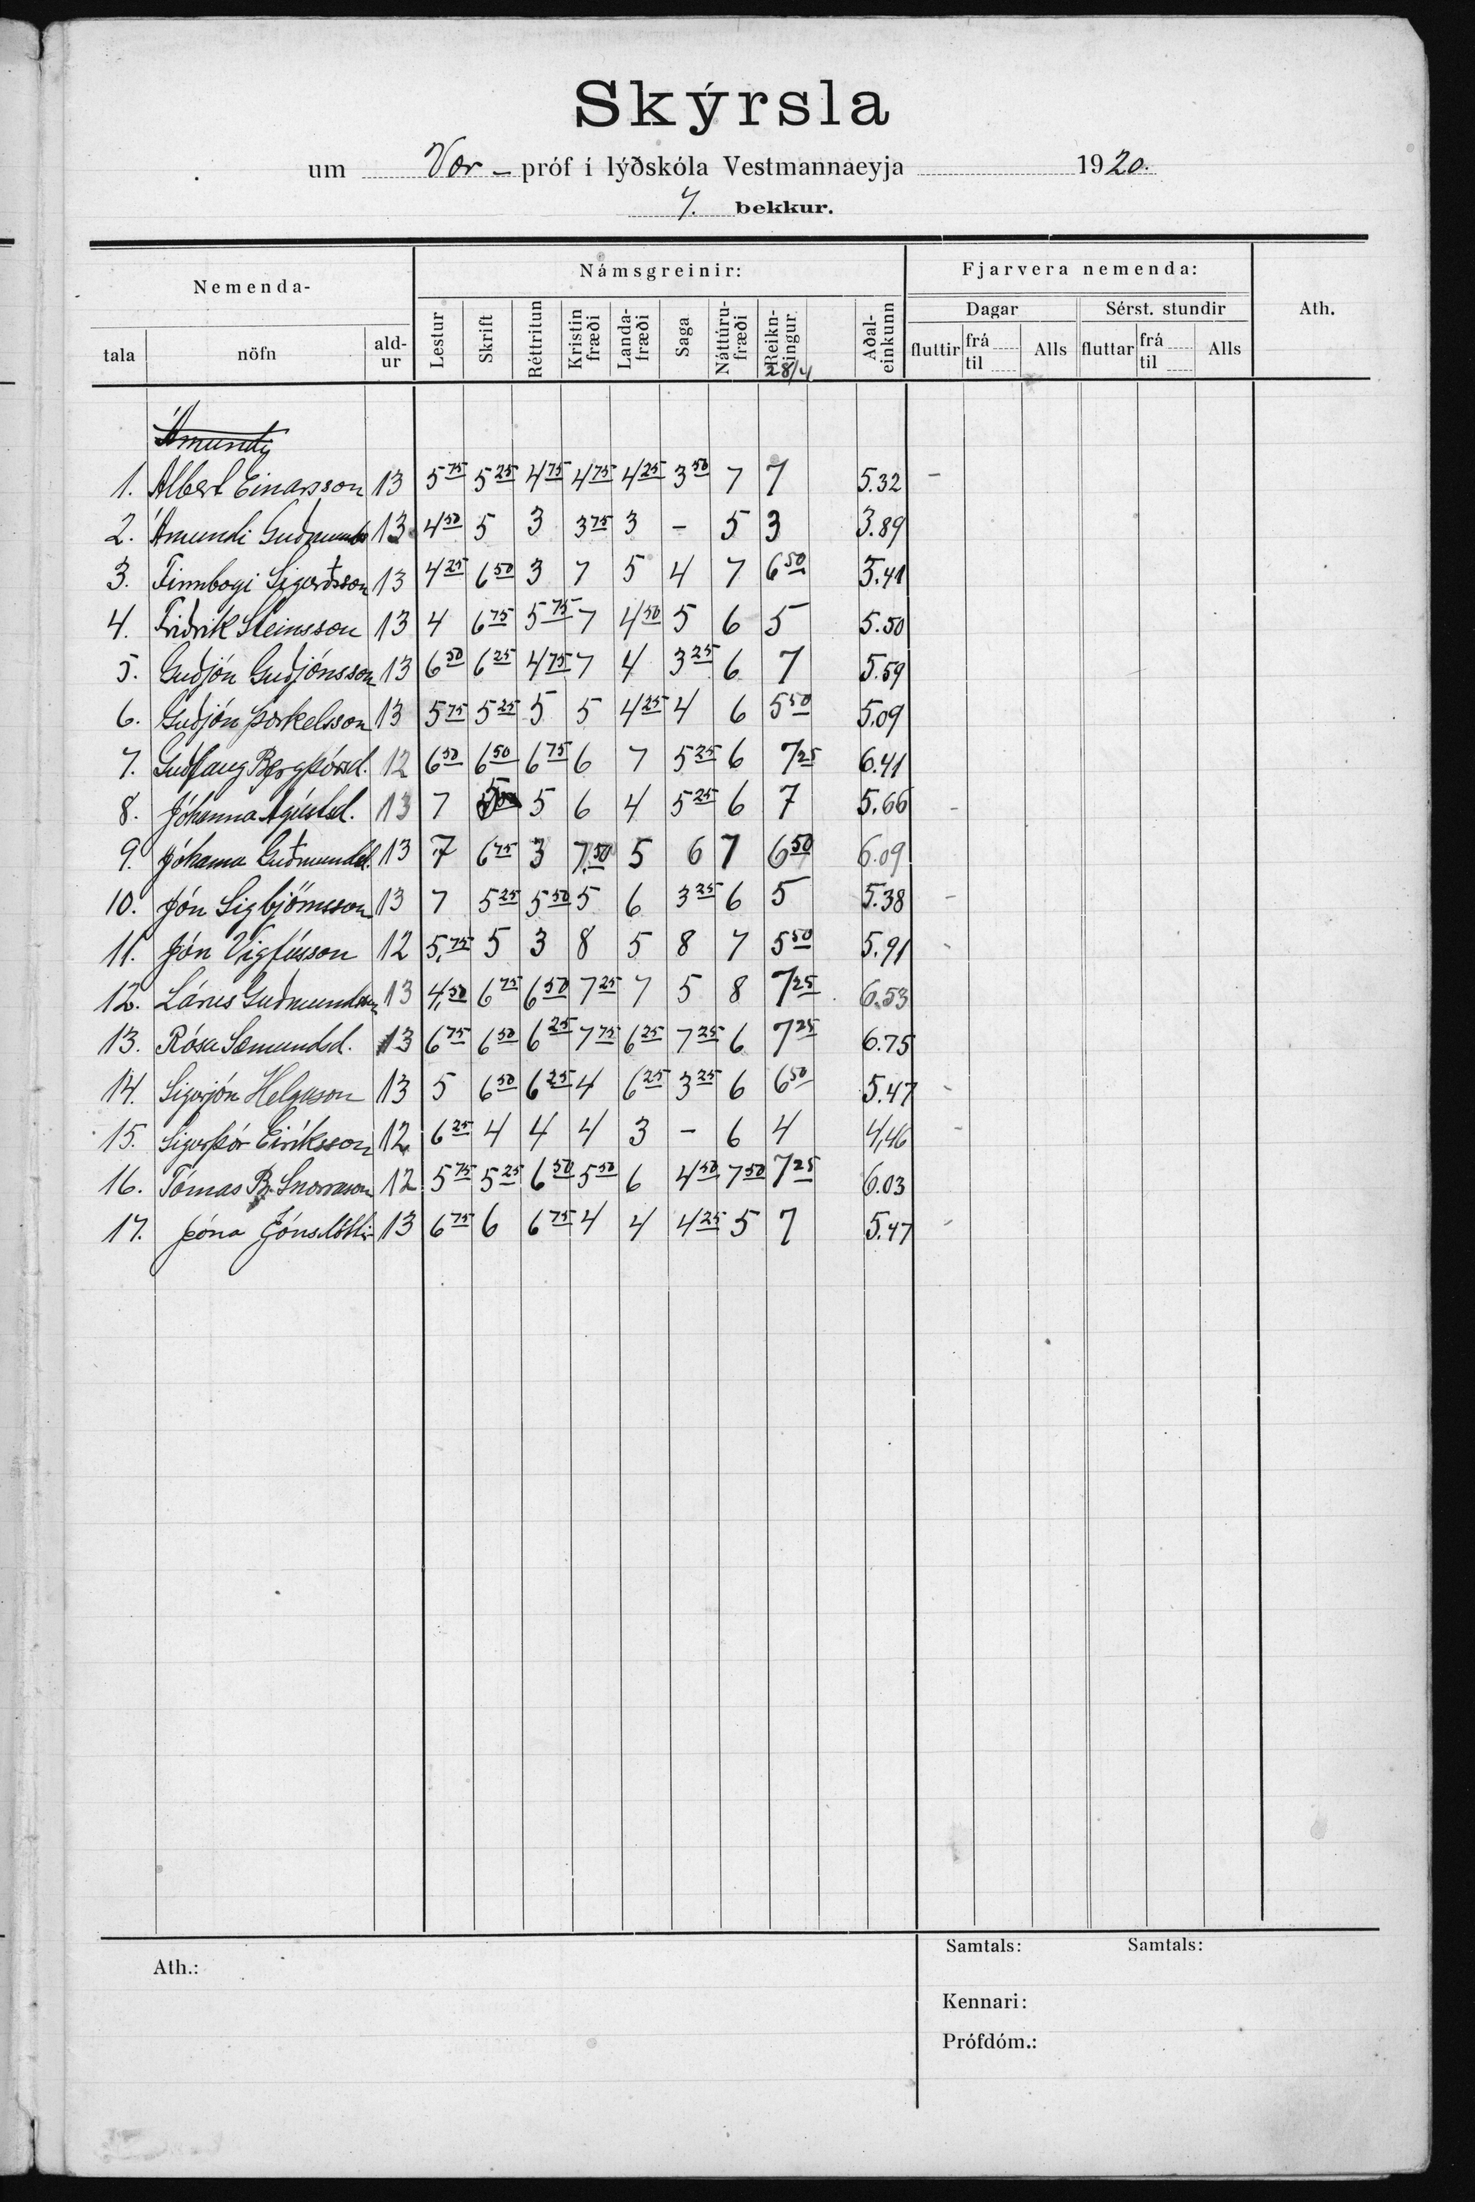 Skýrsla
um Vor - próf í lýðskóla Vestmannaeyja 1920.
7. bekkur.
Nemenda- Námsgreinir: Fjarvera nemenda: Ath.
tala nöfn ald-ur Lestur Skrift Réttritun Kristin fræði Landa-fræði Saga Náttúru-fræði Reikn-ingur 28/4 Aðal-einkunn Dagar fluttir frá til Alls Sérst. stundir fluttar frá til Alls
Ámundi
1. Albert Einarsson 13 5 75 5 25 4 75 4 75 4 25 3 50 7 7 5.32 -
2. Ámundi Guðmunds 13 4 50 5 3 3 75 3 - 5 3 3.89
3. Finnbogi Sigurðsson 13 4 25 6 50 3 7 5 4 7 6 50 5.41
4. Friðrik Steinsson 13 4 6 75 5 75 7 4 50 5 6 5 5.50
5. Guðjón Guðjónsson 13 6 50 6 25 4 75 7 4 3 25 6 7 5.59
6. Guðjón Þorkelsson 13 5 75 5 25 5 5 4 25 4 6 5 50 5.09
7. Guðlaug Bergþórsd. 12 6 50 6 50 6 75 6 7 5 25 6 7 25 6.41
8. Jóhanna Ágústsd. 13 7 5 5 6 4 5 25 6 7 5.66 -
9. Jóhanna Guðmundsd. 13 7 6 75 3 7.50 5 6 7 6 50 6.09
10. Jón Sigbjörnsson 13 7 5 25 5 50 5 6 3 25 6 5 5.38 -
11. Jón Vigfússon 12 5,75 5 3 8 5 8 7 5 50 5.91 -
12. Lárus Guðmundsson 13 4,50 6 75 6 50 7 25 7 5 8 7 25 6.53
13. Rósa Sæmundsd. 13 6 75 6 50 6 25 7 75 6 25 7 25 6 7 25 6.75
14. Sigurjón Helgason 13 5 6 50 6 25 4 6 25 3 25 6 6 50 5.47 -
15. Sigurþór Eiríksson 12 6 25 4 4 4 3 - 6 4 4,46 -
16. Tómas B. Snorrason 12 5 75 5 25 6 50 5 50 6 4 50 7 50 7 25 6.03
17. Þóra Jónsdóttir 13 6 75 6 6 75 4 4 4 25 5 7 5.47 -
Ath.: Samtals: Samtals:
Kennari:
Prófdóm.: